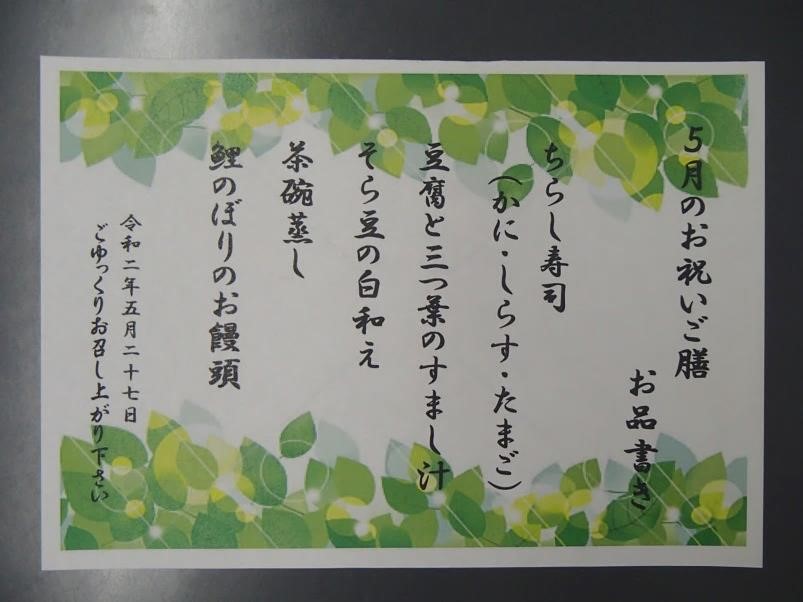 5月のお祝いご膳
お品書き
ちらし寿司
（かに・しらす・たまご）
豆腐と三つ葉のすまし汁
そら豆の白和え
茶碗蒸し
鯉のぼりのお饅頭
令和二年五月二十七日
ごゆっくりお召し上がり下さい